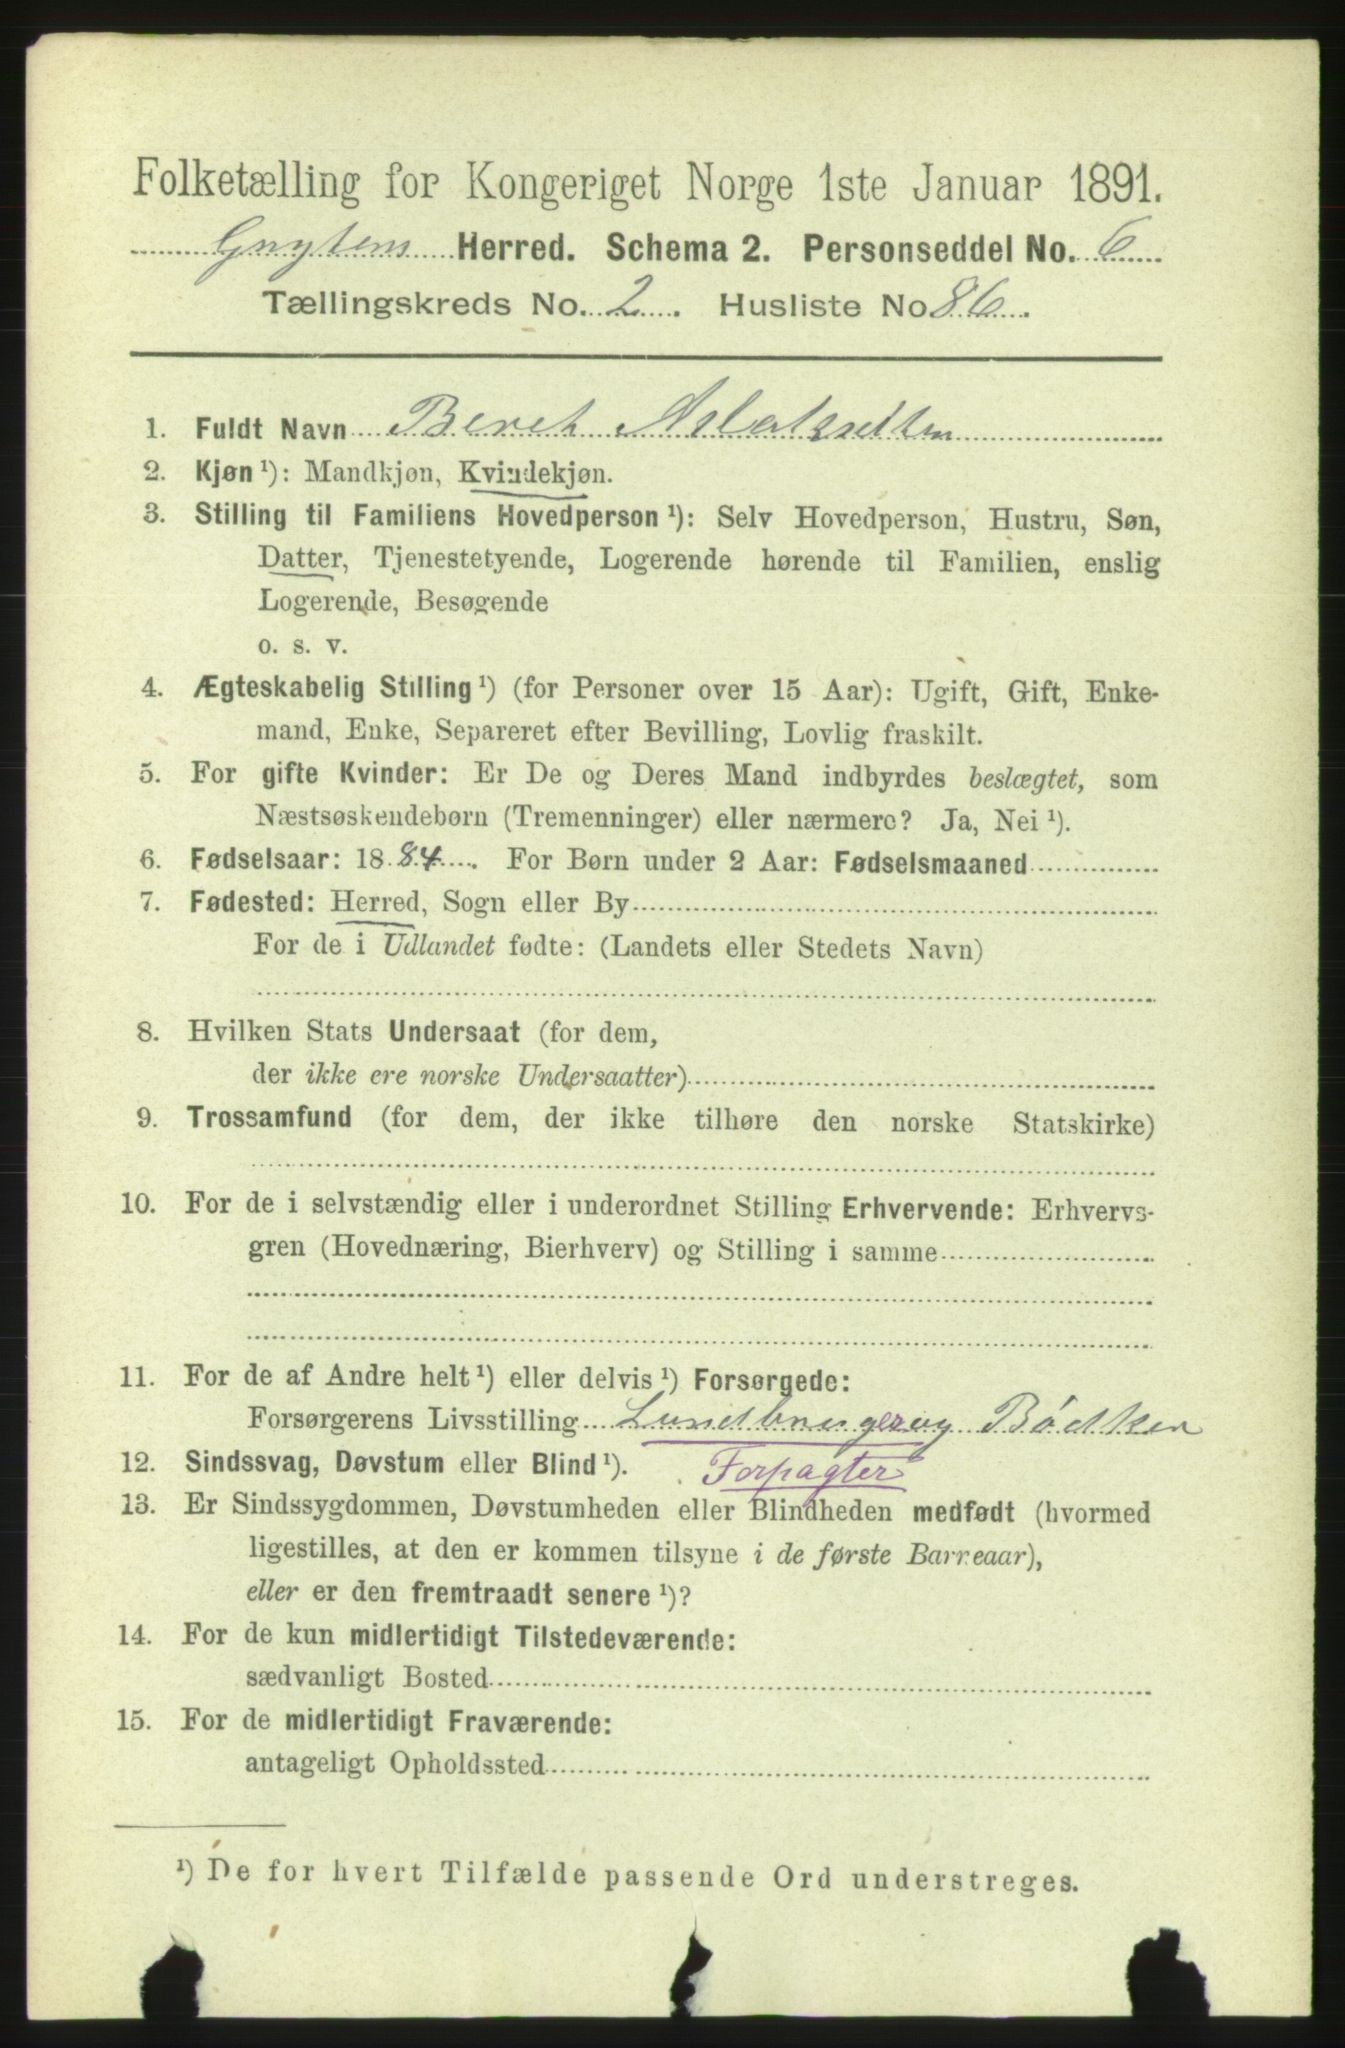 Folketælling for Kongeriget Norge 1ste Januar 1891.
Grytens Herred. Schema 2. Personseddel No. 6
Tællingskreds No. 2. Husliste No 86.
1. Fuldt Navn Beret
2. Kjøn ¹): Mandkjøn, Kvindekjøn.
3. Stilling til Familiens Hovedperson ¹): Selv Hovedperson, Hustru, Søn,
Datter, Tjenestetyende, Logerende hørende til Familien, enslig
Logerende, Besøgende
o. s. v.
4. Ægteskabelig Stilling ¹) (for Personer over 15 Aar): Ugift, Gift, Enke-
mand, Enke, Separeret efter Bevilling, Lovlig fraskilt.
5. For gifte Kvinder: Er De og Deres Mand indbyrdes beslægtet, som
Næstsøskendebørn (Tremenninger) eller nærmere? Ja, Nei ¹).
6. Fødselsaar: 1884. For Børn under 2 Aar: Fødselsmaaned
7. Fødested: Herred, Sogn eller By
For de i Udlandet fødte: (Landets eller Stedets Navn)
8. Hvilken Stats Undersaat (for dem,
der ikke ere norske Undersaatter)
9. Trossamfund (for dem, der ikke tilhøre den norske Statskirke)
10. For de i selvstændig eller i underordnet Stilling Erhvervende: Erhvervs-
gren (Hovednæring, Bierhverv) og Stilling i samme
11. For de af Andre helt ¹) eller delvis ¹) Forsørgede:
Forsørgerens Livsstilling Landbruger og Bødker
12. Sindssvag, Døvstum eller Blind ¹). Forpagter
13. Er Sindssygdommen, Døvstumheden eller Blindheden medfødt (hvormed
ligestilles, at den er kommen tilsyne i de første Barneaar),
eller er den fremtraadt senere ¹)?
14. For de kun midlertidigt Tilstedeværende:
sædvanligt Bosted
15. For de midlertidigt Fraværende:
antageligt Opholdssted
¹) De for hvert Tilfælde passende Ord understreges.